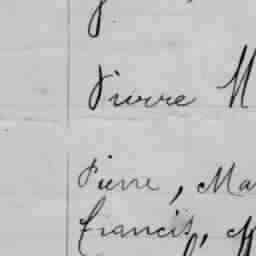 Pierre M
Pierre, Ma
Francis, M